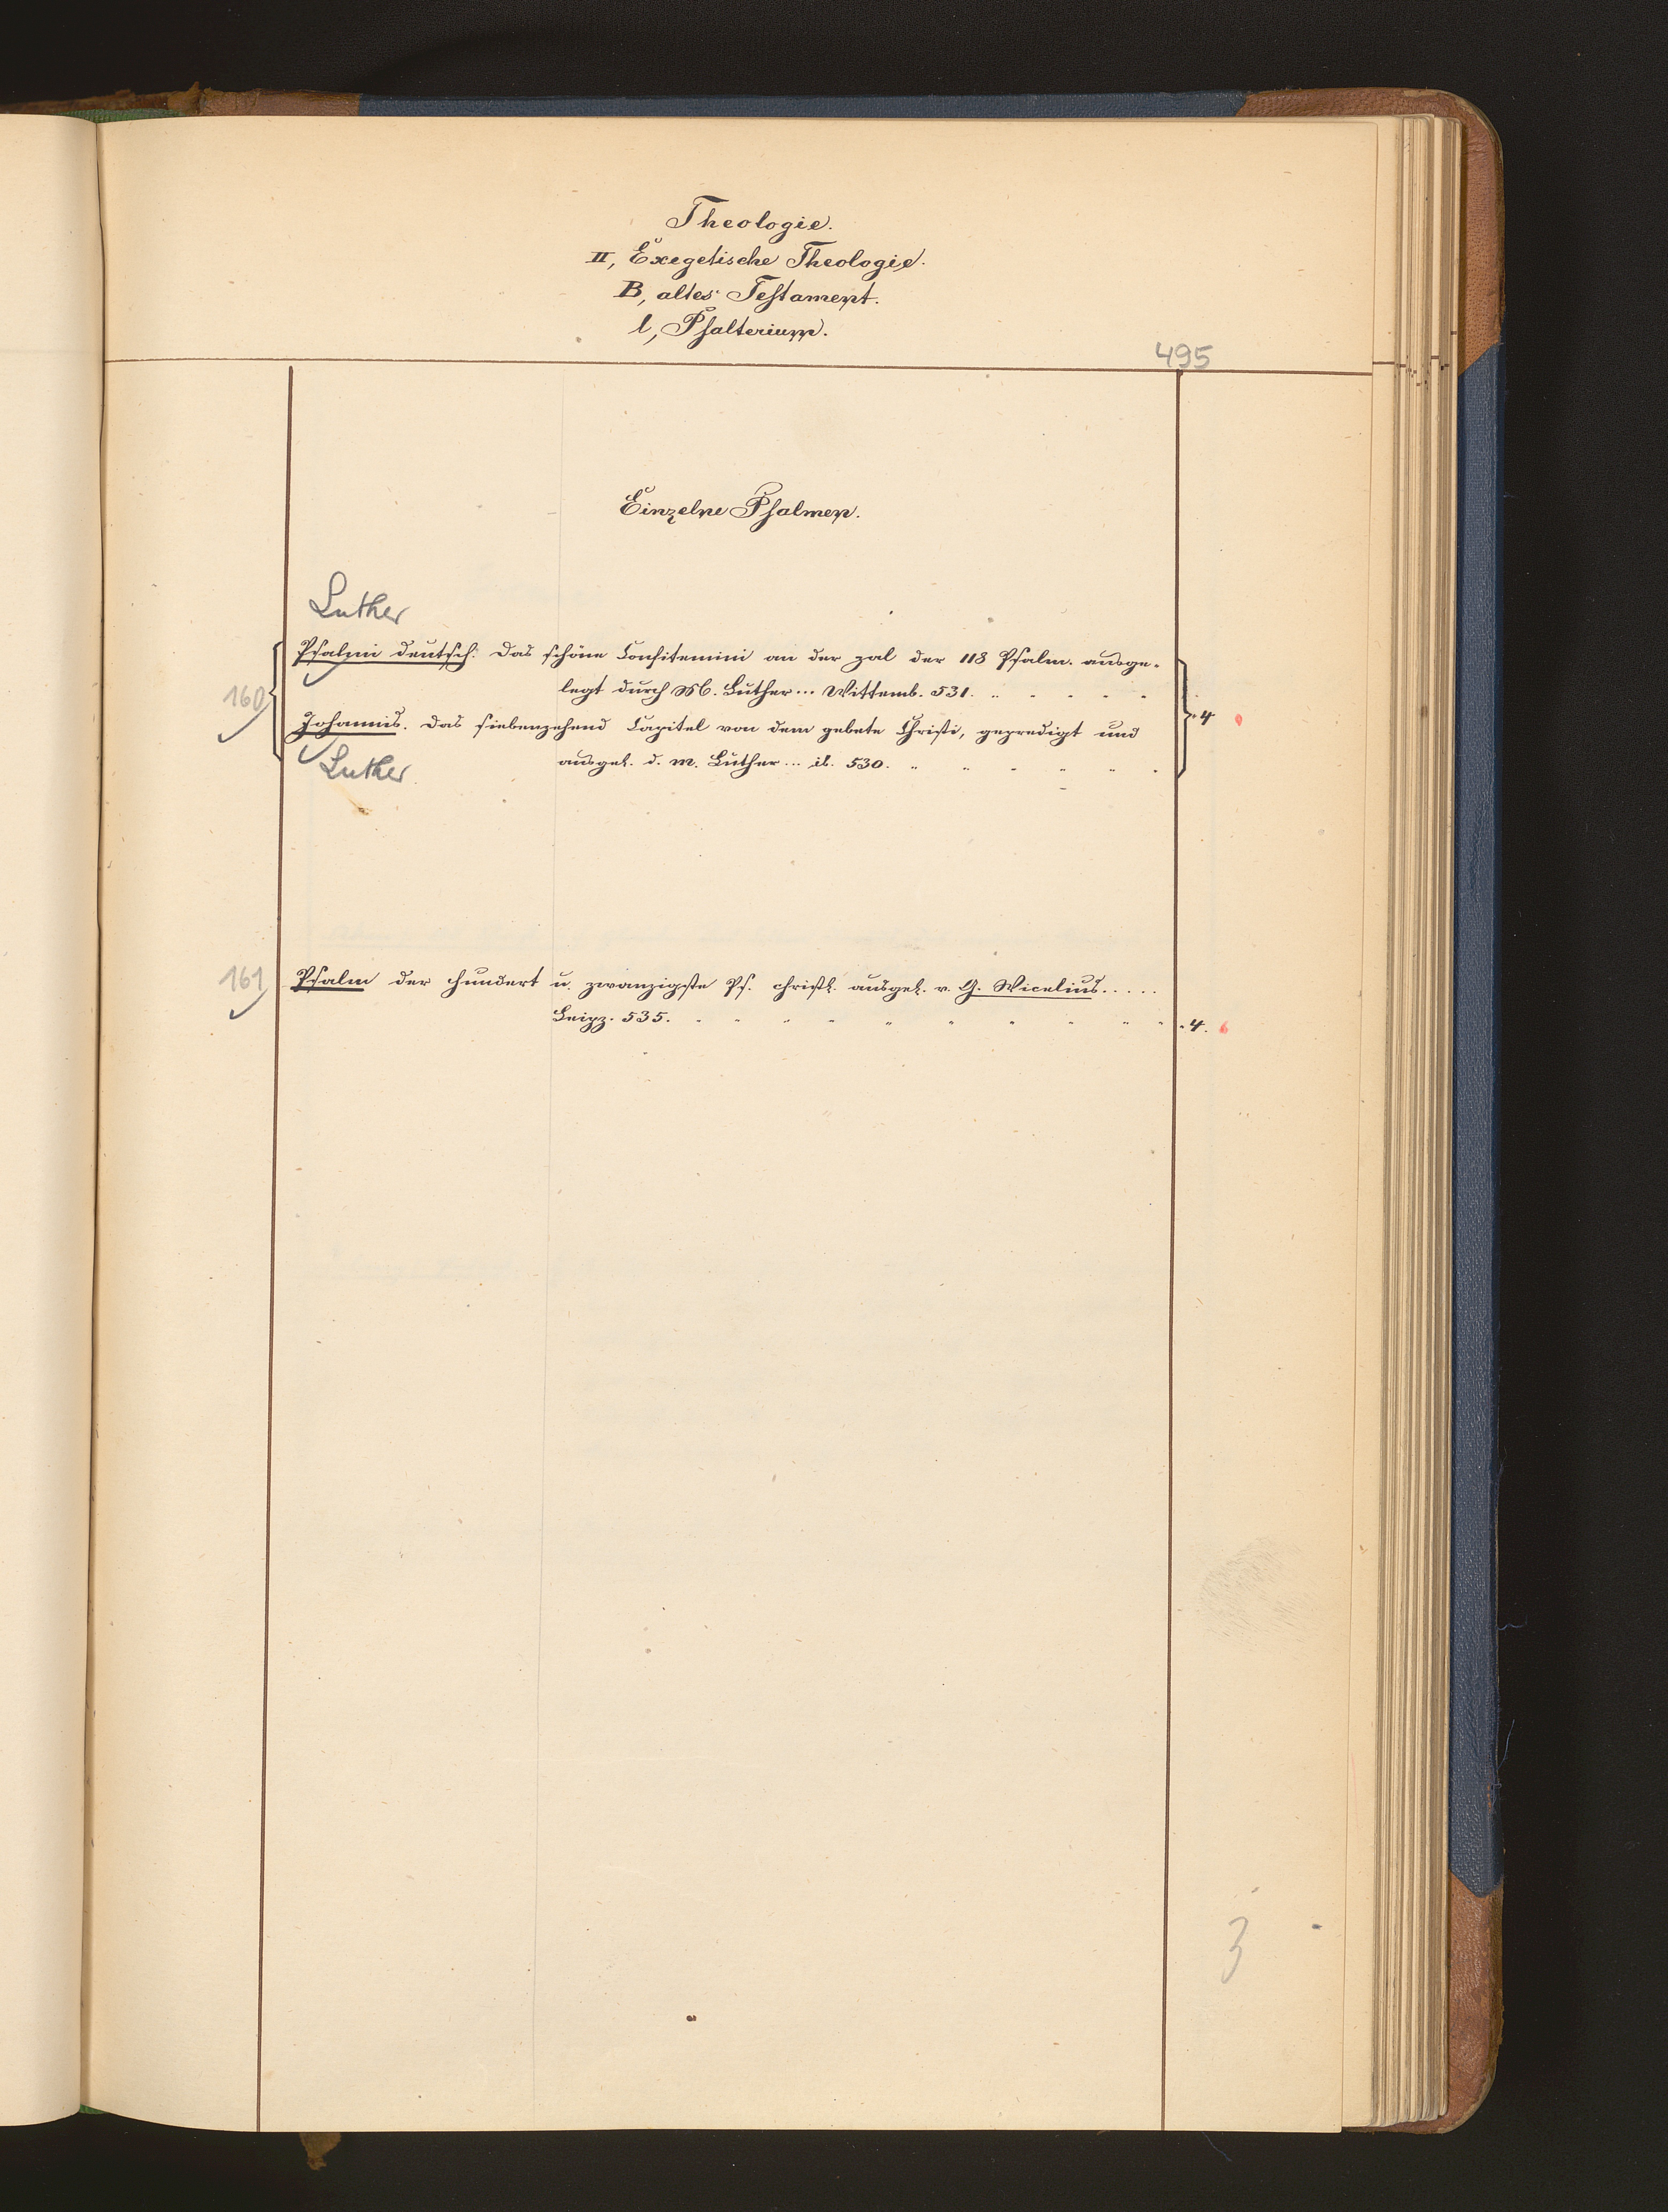 Theologie.
II, Exegetische Theologie.
B, altes Testament.
l, Psalterium.
495
Einzelne Psalmen.
Luther
Psalmi deutsch: Das schöne Confitemini an der zal der 118 Psalm. ausge-
160
legt durch M. Luther... Wittemb. 531.
Johannis. Das siebenzehend Capitel von dem gebete Christi, gepredigt und
4
Luther
ausgel. d. M. Luther... ib. 530.
161
Psalm der hundert u. zwanzigste Ps. christl. ausgel. v. G. Wicelius.....
Leipz. 535.
4.
3